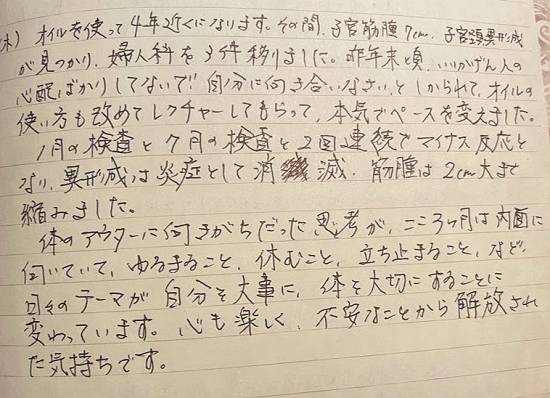 (木) オイルを使って4年近くになります。その間、子宮筋腫7cm、子宮頸異形成
が見つかり、婦人科を3件移りました。昨年末頃、いいかげん人の
心配ばかりしてないで!! 自分に向き合いなさい、としかられて、オイルの
使い方も改めてレクチャーしてもらって、本気でペースを変えました。
1月の検査と7月の検査と2回連続でマイナス反応と
なり、異形成は炎症として消滅、筋腫は2cm大まで
縮みました。
体のアウターに向きがちだった思考が、ここ5ヶ月は内面に
向いていて、ゆるまること、休むこと、立ち止まること、など、
日々のテーマが自分を大事に、体を大切にすることに
変わっています。心も楽しく、不安なことから解放され
た気持ちです。